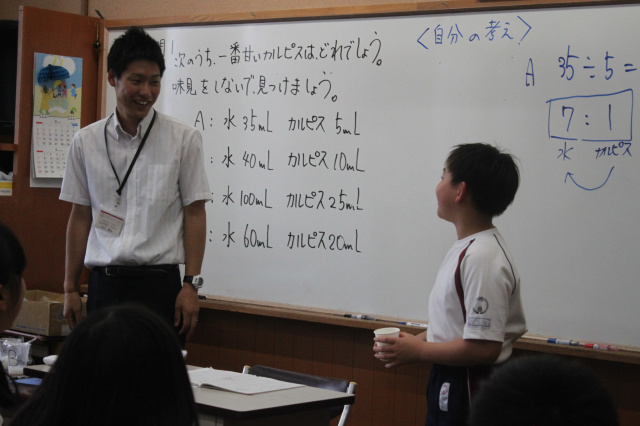 次のうち、一番甘いカルピスは、どれでしょう。
味見をしないで、見つけましょう。
A: 水 35mL カルピス 5mL
: 水 40mL カルピス 10mL
: 水 100mL カルピス 25mL
: 水 60mL カルピス 20mL
<自分の考え>
A 35÷5=
7:1
水 カルピス